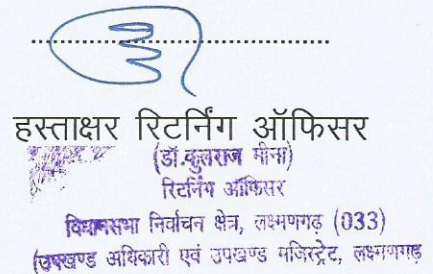 हस्ताक्षर रिटर्निंग ऑफिसर
(डॉ.कुलराज मीना)
रिटर्निंग ऑफिसर
विधानसभा निर्वाचन क्षेत्र, लक्ष्मणगढ़ (033)
(उपखण्ड अधिकारी एवं उपखण्ड मजिस्ट्रेट, लक्ष्मणगढ़